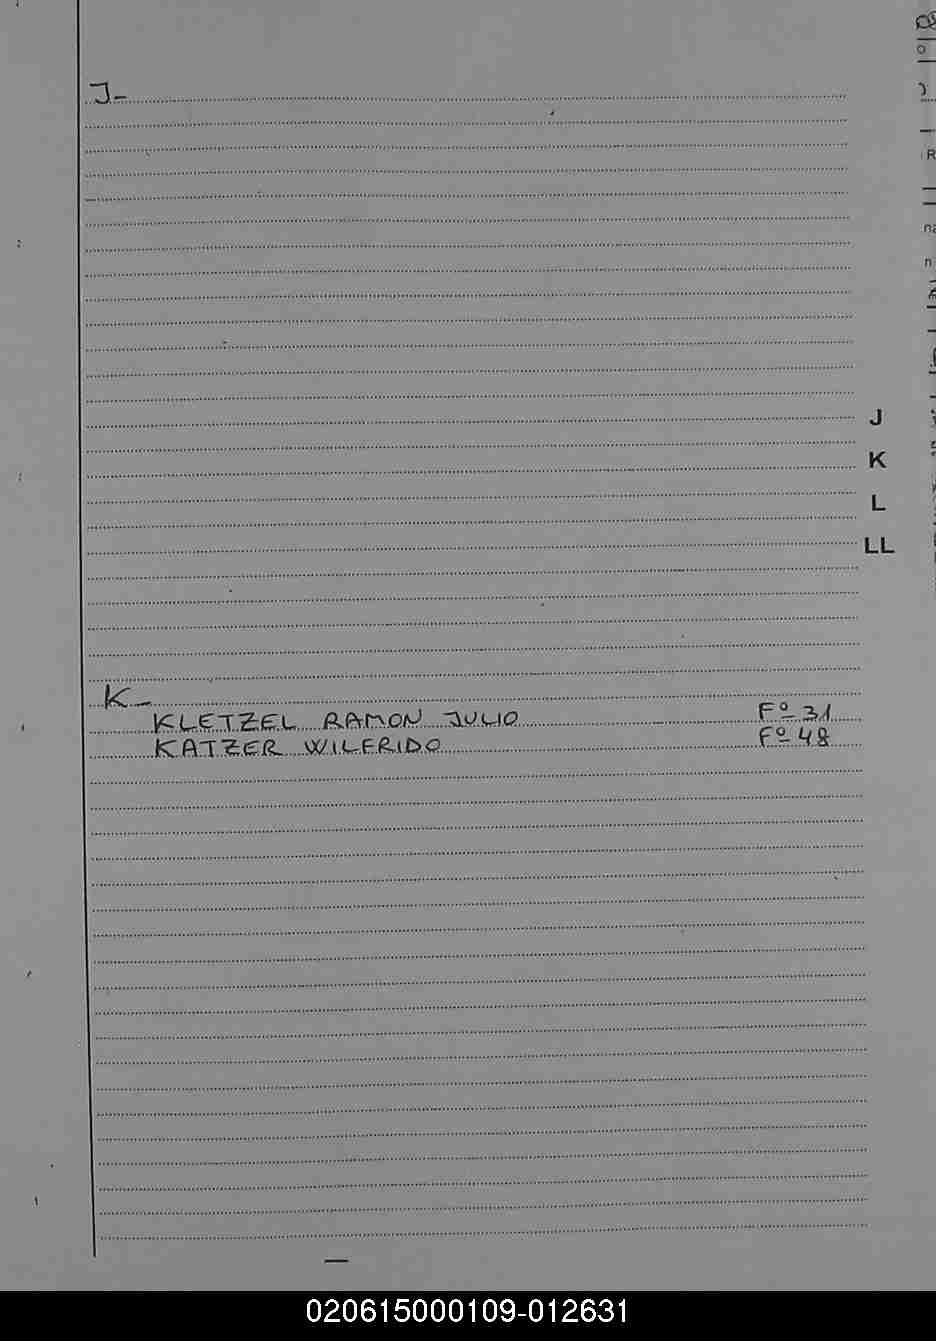 J-
J
K
L
LL
K-
KLETZEL RAMON JULIO Fº 31
KATZER WILFRIDO Fº 48
020615000109-012631